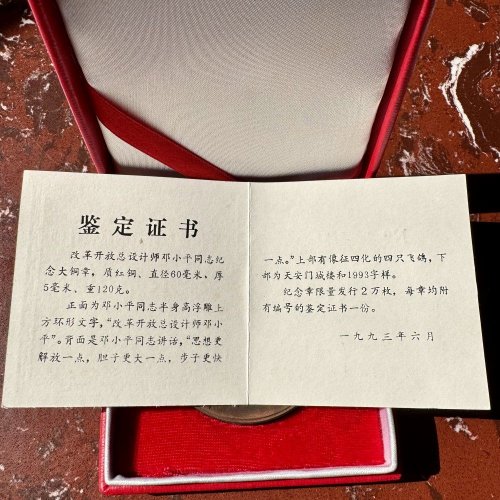 鉴定证书
改革开放总设计师邓小平同志纪
念大铜章，质红铜、直径60毫米，厚
5毫米、重120克。
正面为邓小平同志半身高浮雕上
方环形文字，“改革开放总设计师邓小
平”。背面是邓小平同志讲话，“思想更
解放一点，胆子更大一点，步子更快
一点。”上部有像征四化的四只飞鸽，下
部为天安门城楼和1993字样。
纪念章限量发行２万枚，每章均附
有编号的鉴定证书一份。
一九九三年六月